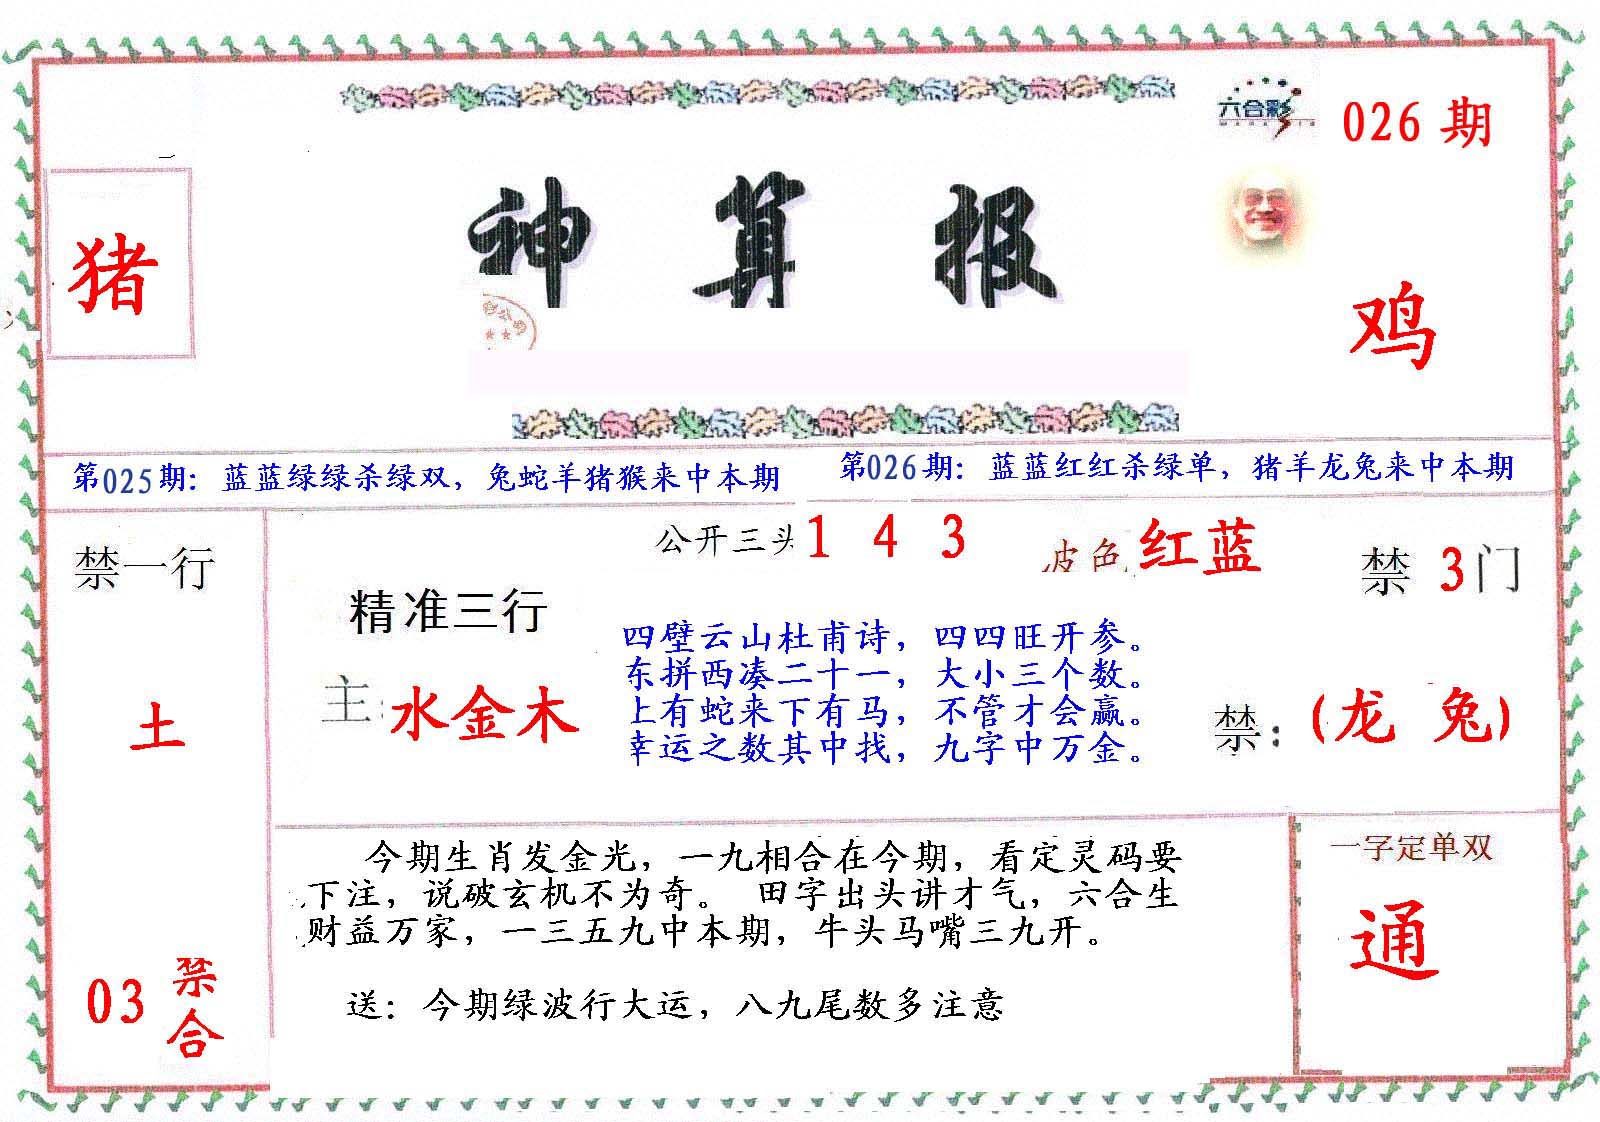 六合彩
026 期
猪
神算报
鸡
第025期：蓝蓝绿绿杀绿双，兔蛇羊猪猴来中本期
第026期：蓝蓝红红杀绿单，猪羊龙兔来中本期
禁一行
土
03 禁合
公开三头 1 4 3
波色 红蓝
禁 3 门
精准三行
主: 水金木
四壁云山杜甫诗，四四旺开参。
东拼西凑二十一，大小三个数。
上有蛇来下有马，不管才会赢。
幸运之数其中找，九字中万金。
禁: (龙 兔)
今期生肖发金光，一九相合在今期，看定灵码要
下注，说破玄机不为奇。 田字出头讲才气，六合生
财益万家，一三五九中本期，牛头马嘴三九开。
送：今期绿波行大运，八九尾数多注意
一字定单双
通